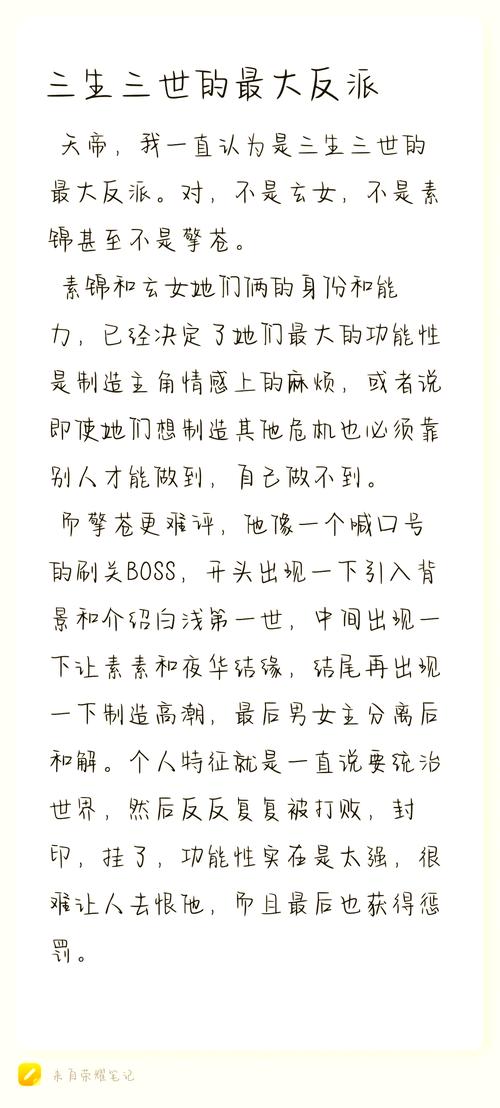 三生三世的最大反派
天帝，我一直认为是三生三世的
最大反派。对，不是玄女，不是素
锦甚至不是擎苍。
素锦和玄女她们俩的身份和能
力，已经决定了她们最大的功能性
是制造主角情感上的麻烦，或者说
即使她们想制造其他危机也必须靠
别人才能做到，自己做不到。
而擎苍更难评，他像一个喊口号
的刷关BOSS，开头出现一下引入背
景和介绍白浅第一世，中间出现一
下让素素和夜华结缘，结尾再出现
一下制造高潮，最后男女主分离后
和解。个人特征就是一直说要统治
世界，然后反反复复被打败，封
印，挂了，功能性实在是太强，很
难让人去恨他，而且最后也获得惩
罚。
来自荣耀笔记